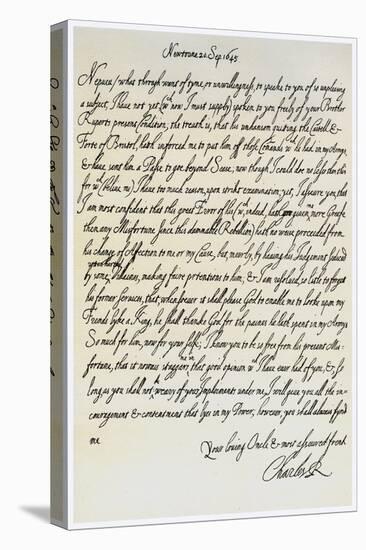 Newtoune 20 Sep. 1645.
Nepueu / what through wants of tyme, or unwillingness, to speake to you of so unpleasing
a subject, I have not yet (wch now I must supply) spoken to you freely of your Brother
Ruperts present Condition, the treuth is, that his unhansom quitting the Castell &
Forte of Bristol, hath inforced me to put him off those Comands wch he had in my Armys
& have sent him a Passe to goe beyond Seas, now though I could doe no lesse then this
for wch (beliue me) I have too much reason, upon strict examination, yet, I assure you that
I am most confident that this great Error of his (wch indeed, hath given me more Griefe
then any Misfortune since this damnable Rebellion) hath no wayes proceeded from
his change of Affection to me or my Cause, but meerly, by having his Judgement seduced
by some Villaines, making faire pretentions to him, & I am resolued so litle to forget
his former seruices, that when sever it shall please God to enable me to looke upon my
Frends lyke a King, he shall thanke God for the paines he hath spent in my Armys
So much for him, now for your selfe; I know you to be so free from his present Mis-
fortune, that it nowais staggers that good opinion wch I have ever had of you, & so
long as you shall not weary of your Imployments under me, I will give you all the in-
couragement & contentment that lyes in my Power; however, you shall always fynd
me
Your loving Oncle & most assured frend
Charles R